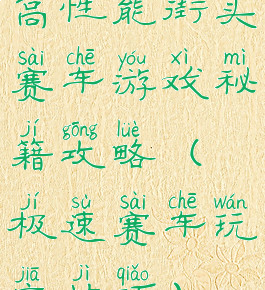 高性能街头
sài chē yóu xì mì
赛车游戏秘
jí gōng lüè
籍攻略（
jí sù sài chē wán
极速赛车玩
jiā jì qiǎo